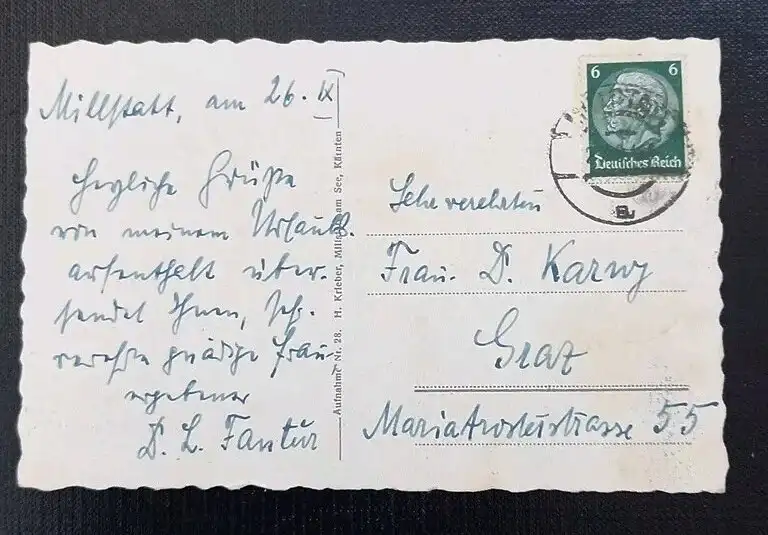 Millstatt, am 26. IX
Herzliche Grüße
von meinem Urlaubs-
aufenthalt über-
sendet Ihnen, seh.
verehrte gnädige Frau
ergebener
D. L. Fantur
Aufnahme Nr. 28. H. Krieber, Millstatt am See, Kärnten
6 6
Deutsches Reich
Frau D.
Graz
55